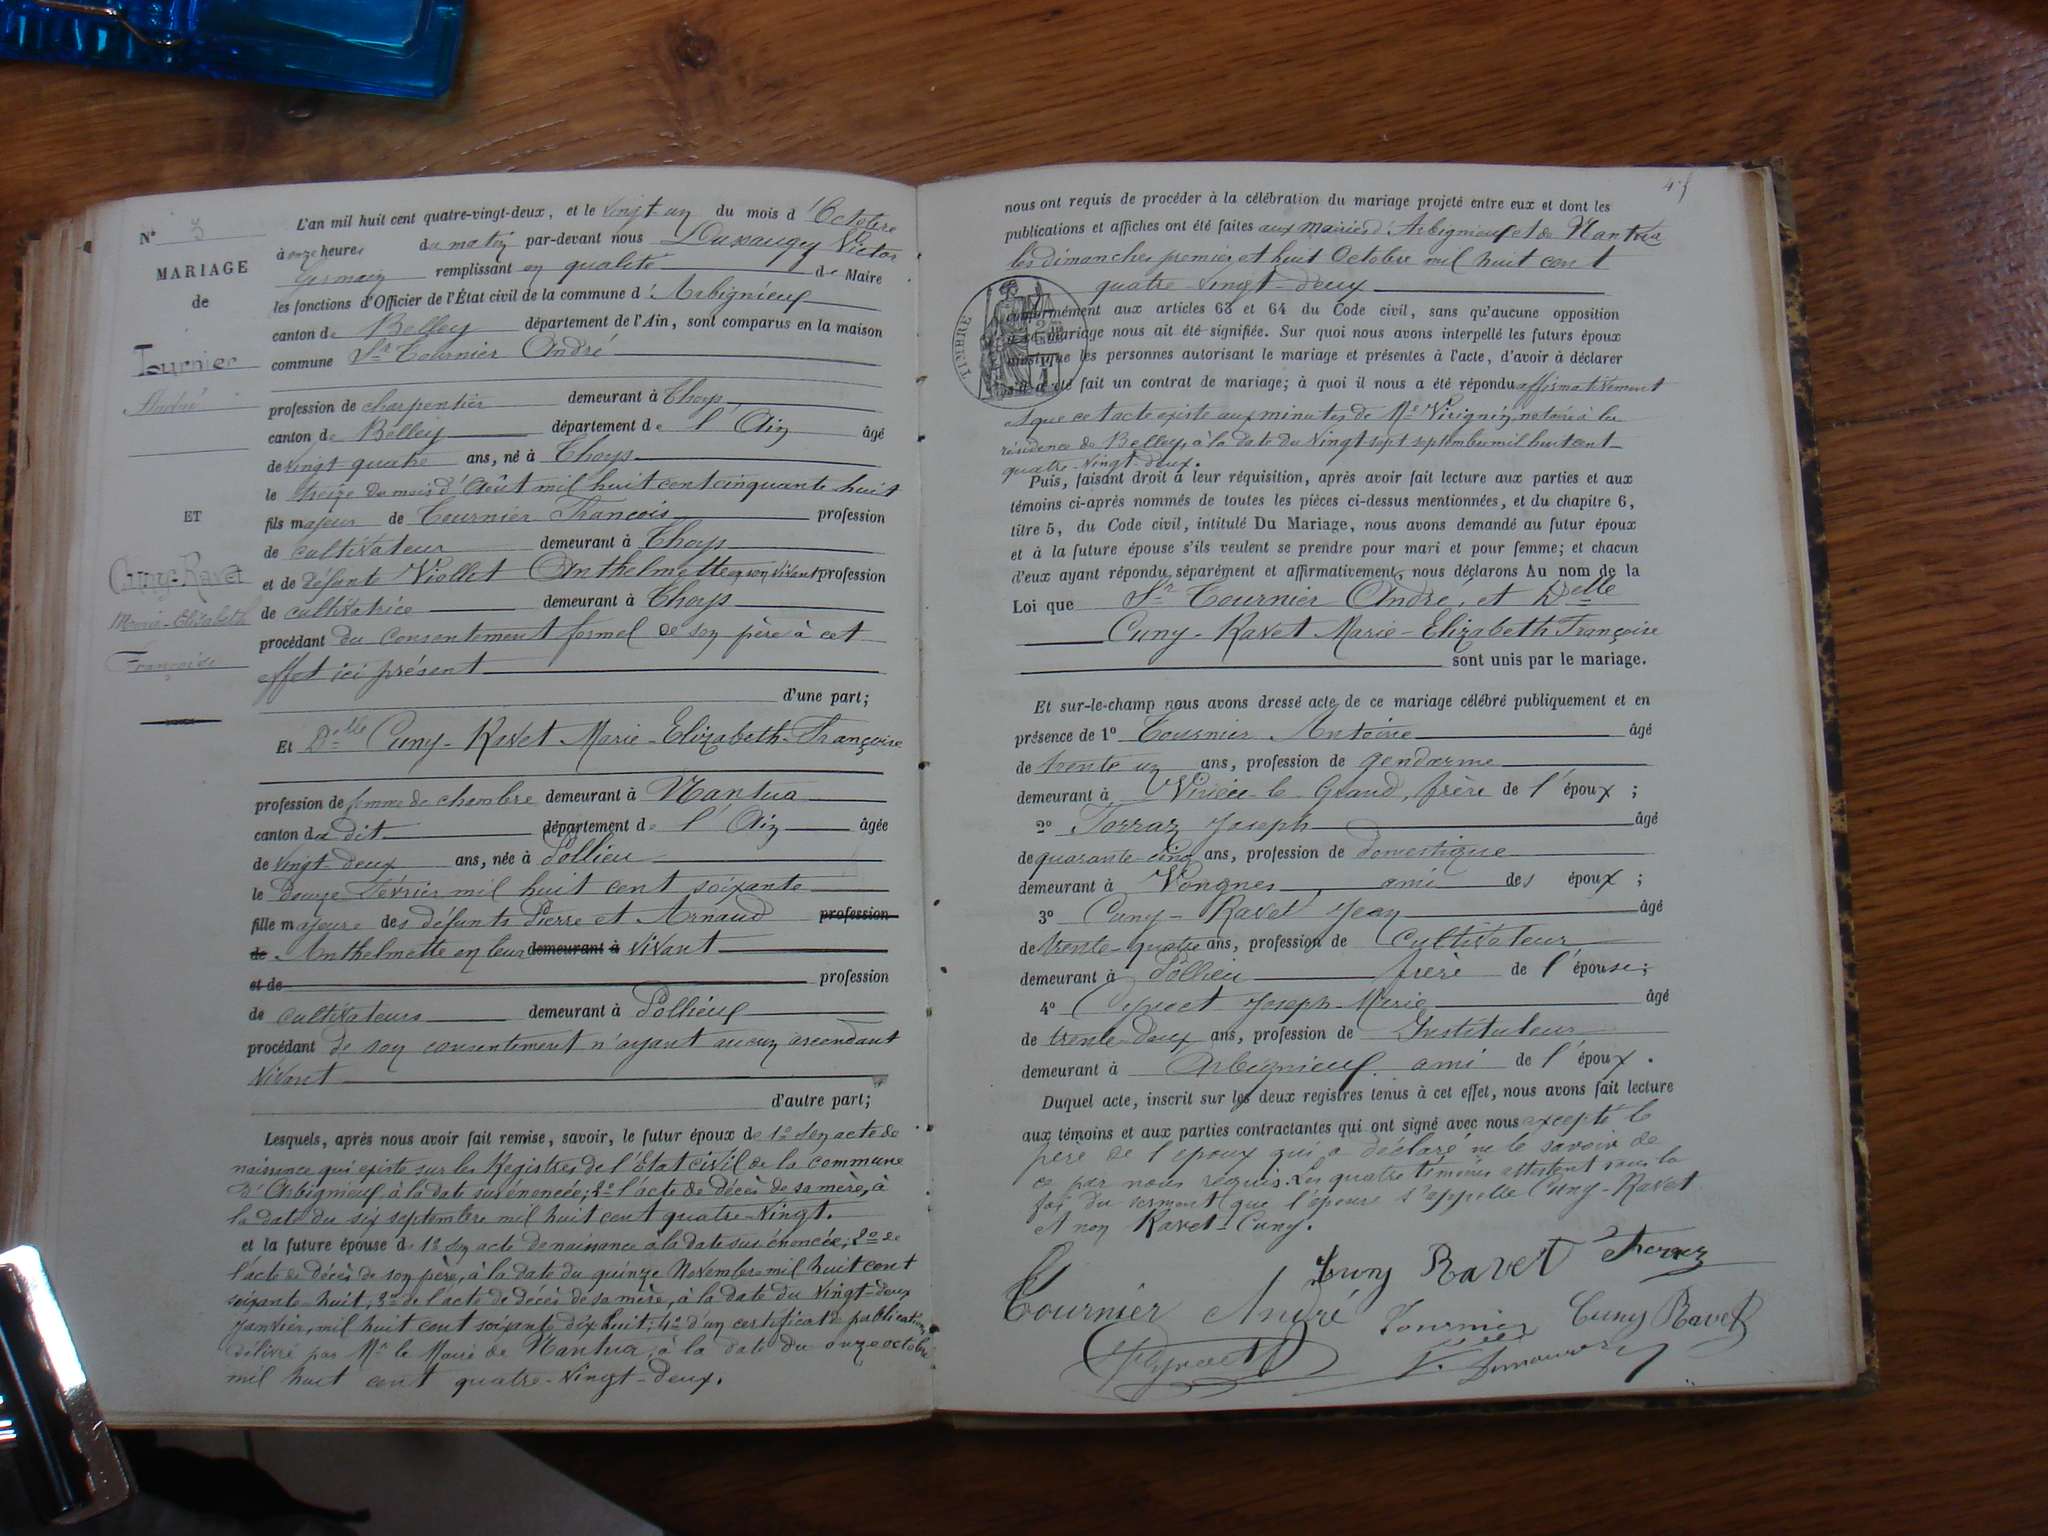 N° 3
MARIAGE
de
Tournier
André
ET
Cuny-Ravet
Marie-Elisabeth
Françoise
L'an mil huit cent quatre-vingt-deux, et le vingt-un du mois d'Octobre
à onze heures du matin par-devant nous Dussaugey Victor
Germain remplissant en qualité de Maire
les fonctions d'Officier de l'État civil de la commune d'Arbignieu
canton de Belley département de l'Ain, sont comparus en la maison
commune Sr Tournier André
profession de charpentier demeurant à Thoys
canton de Belley département de l'Ain âgé
de vingt-quatre ans, né à Thoys
le treize du mois d'Août mil huit cent cinquante huit
fils majeur de Tournier François profession
de cultivateur demeurant à Thoys
et de défunte Viollet Anthelmette en son vivant profession
de cultivatrice demeurant à Thoys
procédant du consentement formel de son père à cet
effet ici présent
d'une part;
Et Delle Cuny-Ravet Marie-Elizabeth-Françoise
profession de femme de chambre demeurant à Nantua
canton du dit département de l'Ain âgée
de vingt-deux ans, née à Pollieu
le douze Février mil huit cent soixante
fille majeure des défunts Pierre et Arnaud profession
de Anthelmette en leur demeurant à vivant
et de profession
de cultivateurs demeurant à Pollieu
procédant de son consentement n'ayant aucun ascendant
vivant
d'autre part;
Lesquels, après nous avoir fait remise, savoir, le futur époux de 1° son acte de
naissance qui existe sur les Registres de l'Etat civil de la commune
d'Arbignieu à la date sus énoncée; 2° l'acte de décès de sa mère, à
la date du six septembre mil huit cent quatre-vingt.
et la future épouse de 1° son acte de naissance à la date sus énoncée; 2° de
l'acte de décès de son père, à la date du quinze Novembre mil huit cent
soixante-huit, 3° de l'acte de décès de sa mère, à la date du vingt-deux
Janvier, mil huit cent soixante dix huit; 4° d'un certificat de publication
délivré par Mr le Maire de Nantua, à la date du onze octobre
mil huit cent quatre-vingt-deux.
nous ont requis de procéder à la célébration du mariage projeté entre eux et dont les
publications et affiches ont été faites aux mairies d'Arbignieu et de Nantua
les dimanches premier et huit Octobre mil huit cent
quatre-vingt-deux
TIMBRE
conformément aux articles 63 et 64 du Code civil, sans qu'aucune opposition
à ce mariage nous ait été signifiée. Sur quoi nous avons interpellé les futurs époux
ainsi que les personnes autorisant le mariage et présentes à l'acte, d'avoir à déclarer
s'il a été fait un contrat de mariage; à quoi il nous a été répondu affirmativement
et que cet acte existe aux minutes de Me Virignin, notaire à la
résidence de Belley, à la date du vingt sept septembre mil huit cent
quatre-vingt-deux.
Puis, faisant droit à leur réquisition, après avoir fait lecture aux parties et aux
témoins ci-après nommés de toutes les pièces ci-dessus mentionnées, et du chapitre 6,
titre 5, du Code civil, intitulé Du Mariage, nous avons demandé au futur époux
et à la future épouse s'ils veulent se prendre pour mari et pour femme; et chacun
d'eux ayant répondu séparément et affirmativement, nous déclarons Au nom de la
Loi que Sr Tournier André, et Delle
Cuny-Ravet Marie-Elizabeth Françoise
sont unis par le mariage.
Et sur-le-champ nous avons dressé acte de ce mariage célébré publiquement et en
présence de 1° Tournier Antoine âgé
de trente un ans, profession de gendarme
demeurant à le Grand, frère de l'époux;
2° Joseph âgé
de quarante-cinq ans, profession de domestique
demeurant à Vongnes, ami des époux;
3° Cuny-Ravet Jean âgé
de trente-quatre ans, profession de cultivateur
demeurant à Pollieu frère de l'épouse;
4° Joseph-Marie âgé
de trente-deux ans, profession de Instituteur
demeurant à Arbignieu ami de l'époux.
Duquel acte, inscrit sur les deux registres tenus à cet effet, nous avons fait lecture
aux témoins et aux parties contractantes qui ont signé avec nous excepté le
père de l'époux qui a déclaré ne le savoir de
ce par nous requis. Les quatre témoins attestent sous la
foi du serment que l'épouse s'appelle Cuny-Ravet
et non Ravet-Cuny.
Cuny Ravet
Tournier André Tournier Cuny Ravet